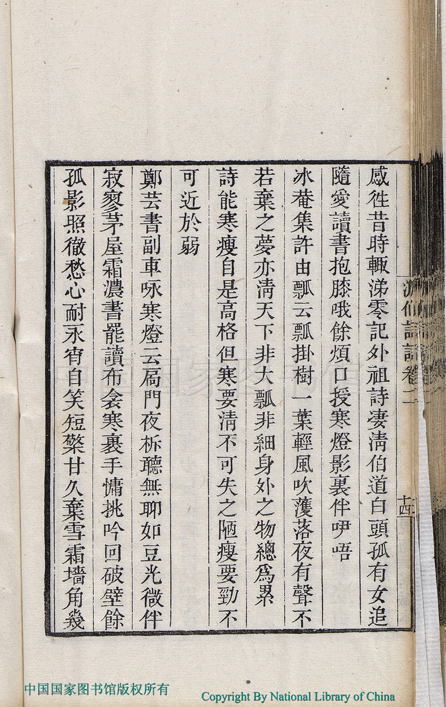 感徃昔時輙涕零記外祖詩凄清伯道白頭孤有女追
隨愛讀書抱膝哦餘煩口授寒燈影裏伴咿唔
冰菴集許由瓢云瓢掛樹一葉輕風吹蘀落夜有聲不
若棄之夢亦清天下非大瓢非細身外之物總爲累
詩能寒瘦自是高格但寒要清不可失之陋瘦要勁不
可近於弱
鄭芸書副車咏寒燈云扃門夜柝聽無聊如豆光微伴
寂寥茅屋霜濃書罷讀布衾寒裹手慵挑吟回破壁餘
孤影照徹愁心耐永宵自笑短檠甘久棄雪霜墻角幾
詩話卷二
十四
中国国家图书馆版权所有
Copyright By National Library of China